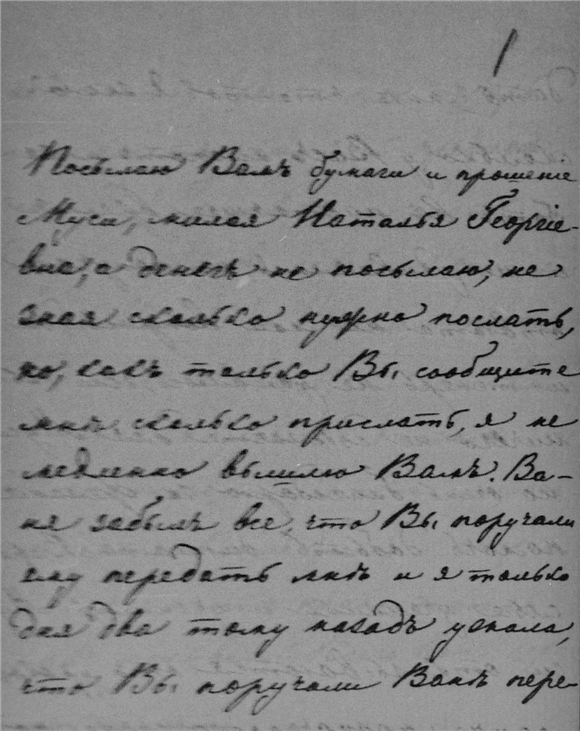 1
Посылаю Вамъ бумаги и прошенiе
Муси, милая Наталья Георгiе-
вна, а денегъ не посылаю, не
зная сколько нужно послать,
но, какъ только Вы сообщите
мнѣ, сколько прислать, я не
медленно вышлю Вамъ. Ва-
ня забылъ все, что Вы поручали
ему передать мнѣ и я только
дня два тому назадъ узнала,
что Вы поручали Ванѣ пере-